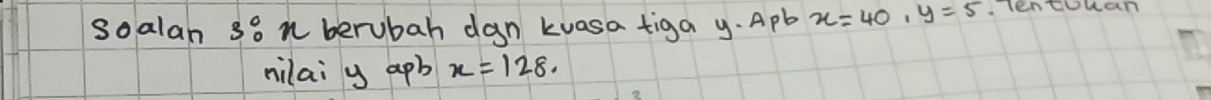 Soalan 3: x berubah dgn kuasa tiga y. Apb x = 40, y = 5. Tentukan
nilai y apb x = 128.